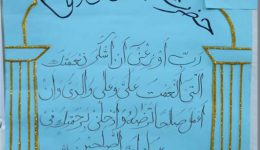 حضرت
رب أوزعنی أن أشکر نعمتک
التی أنعمت علی وعلی والدی وأن
أعمل صالحا ترضه و أدخلنی برحمتک فی
الصالحین